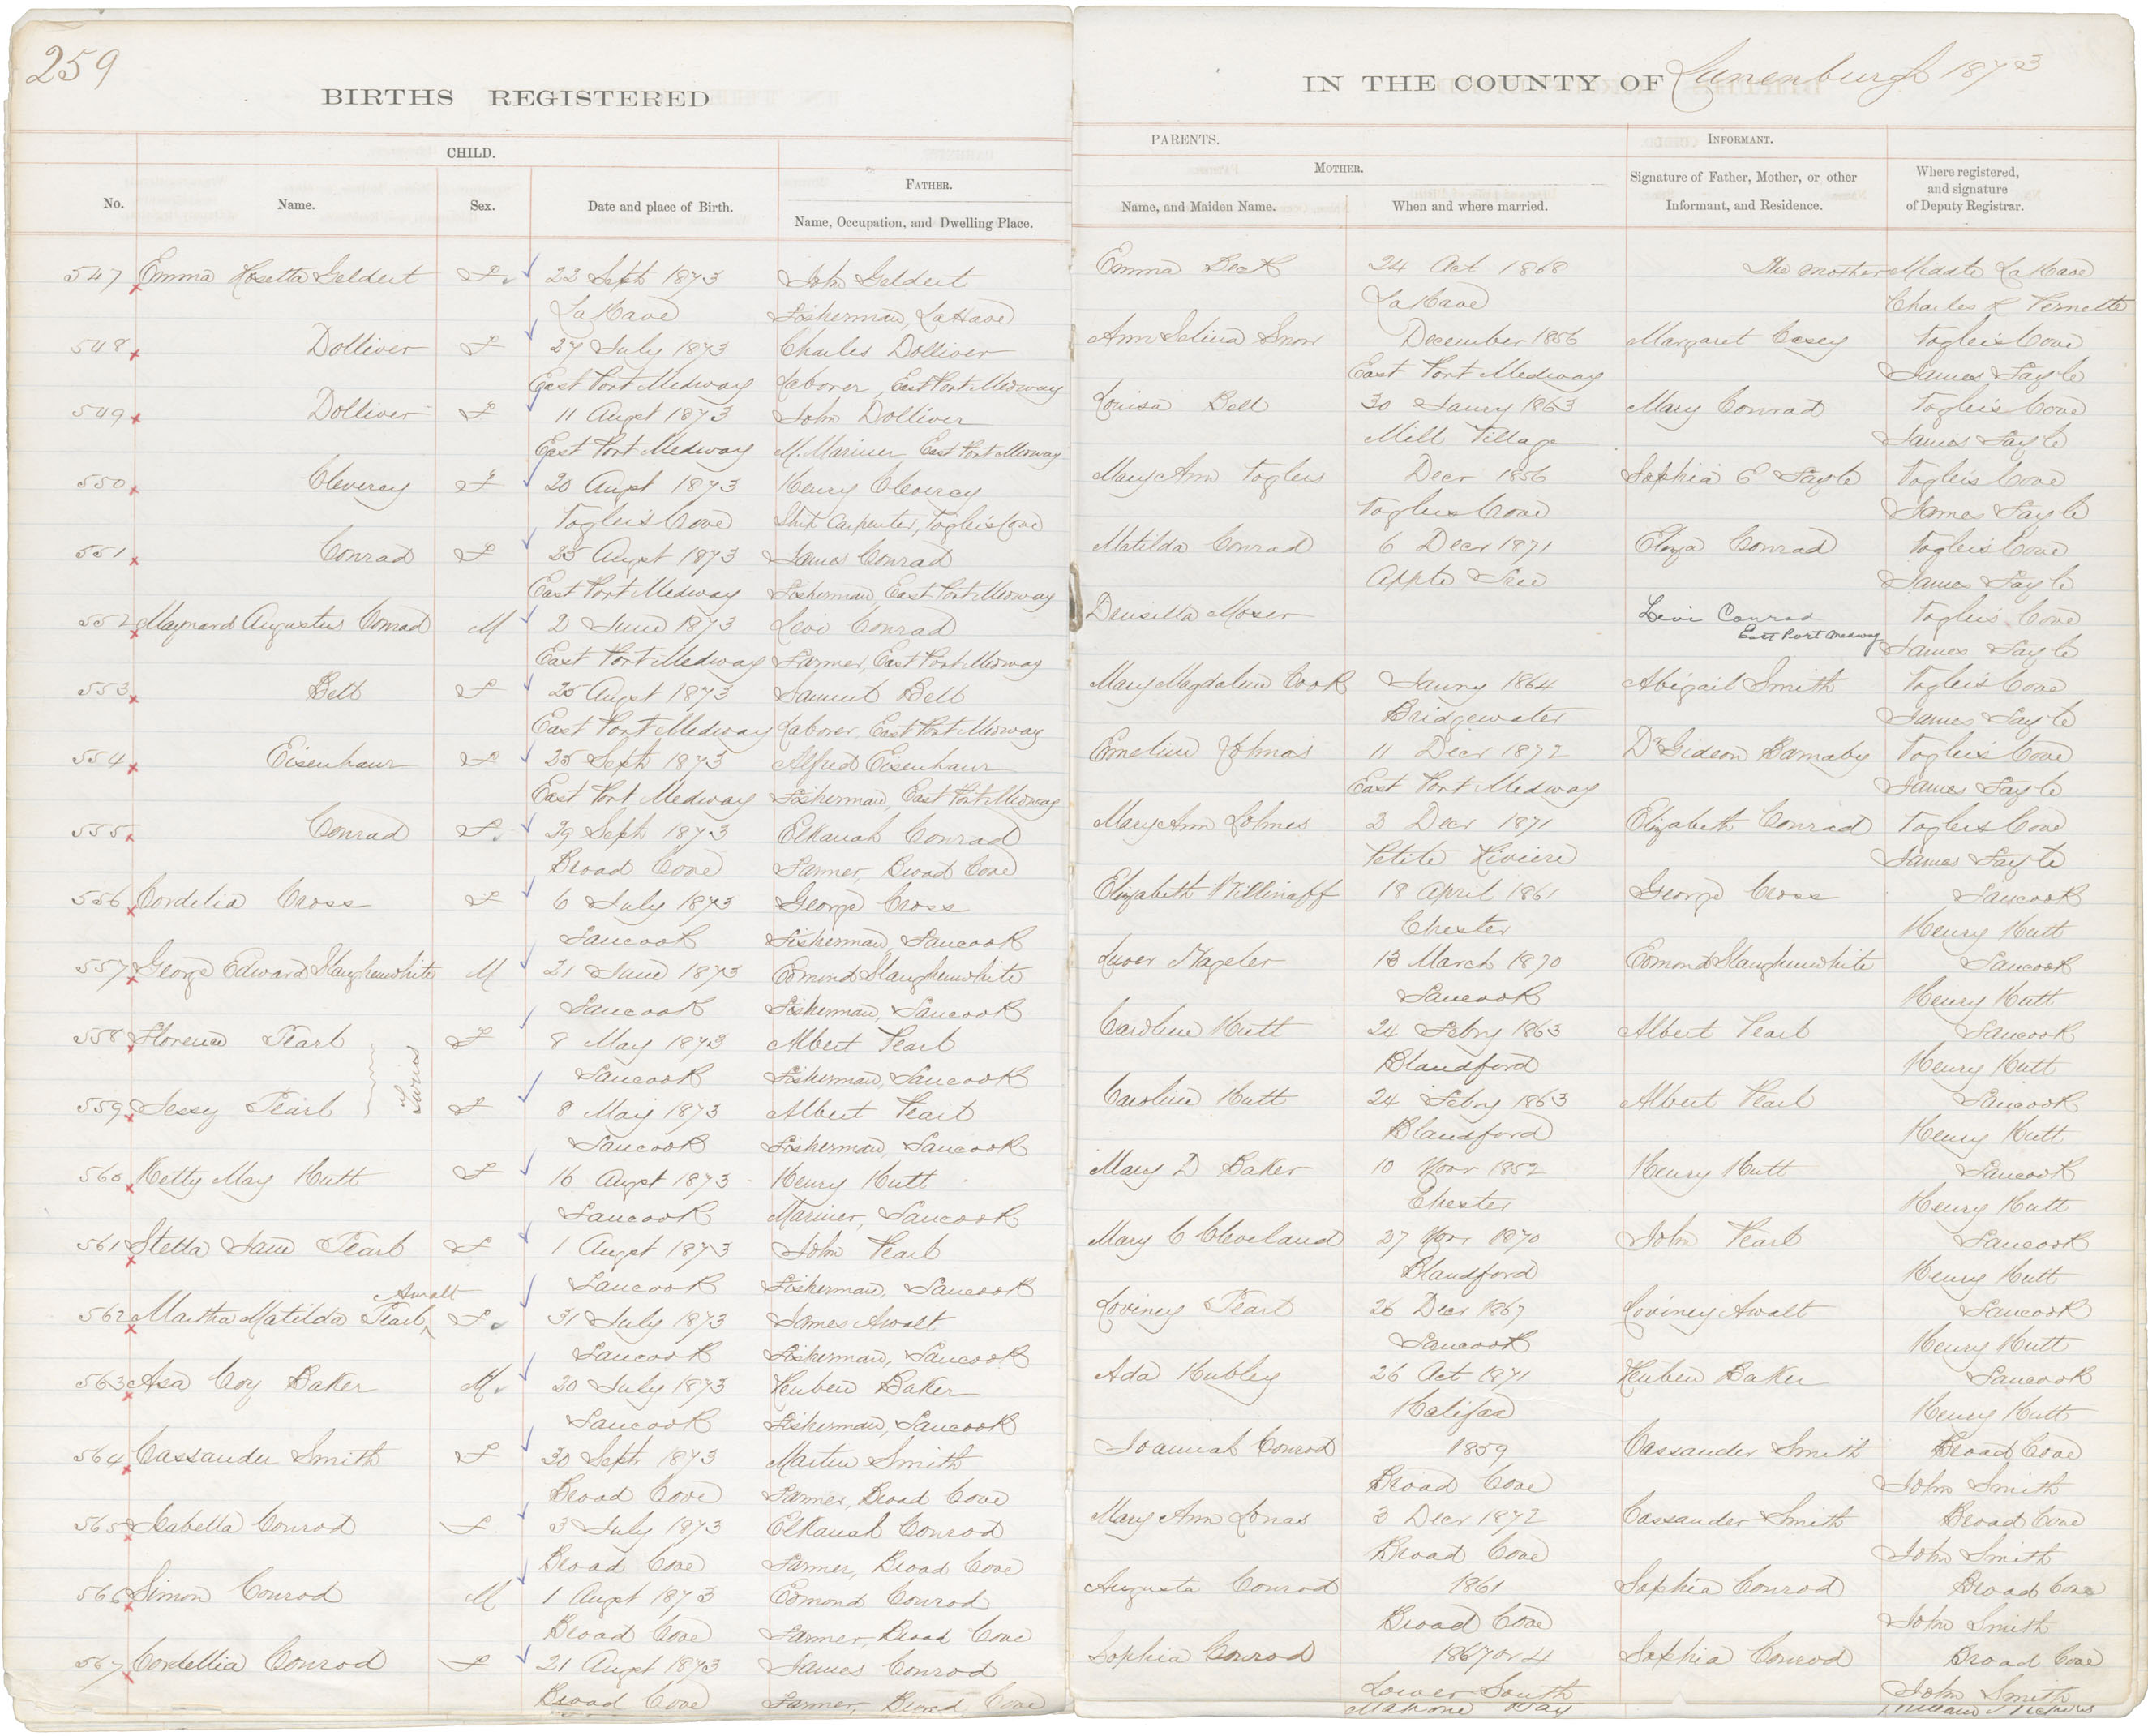 259
BIRTHS REGISTERED
IN THE COUNTY OF Lunenburgh 1873
CHILD.
PARENTS.
INFORMANT.
No.
Name.
Sex.
Date and place of Birth.
FATHER.
Name, Occupation, and Dwelling Place.
MOTHER.
Name, and Maiden Name.
When and where married.
Signature of Father, Mother, or other
Informant, and Residence.
Where registered,
and signature
of Deputy Registrar.
547 Emma Rosetta Geldert F 22 Sept 1873 John Geldert Emma Beck 24 Oct 1868 The mother Middle LaHave
LaHave Fisherman, LaHave LaHave Charles L Pernette
548 Dolliver F 27 July 1873 Charles Dolliver Ann Selina Snow December 1856 Margaret Casey Voglers Cove
East Port Medway Laborer, East Port Medway East Port Medway James Sayle
549 Dolliver F 11 Augst 1873 John Dolliver Louisa Bell 30 Janry 1863 Mary Conrad Vogler's Cove
East Port Medway M. Mariner East Port Medway Mill Village James Sayle
550 Cleversy F 20 Augst 1873 Henry Cleversy Mary Ann Voglers Decr 1856 Sophia E Sayle Vogler's Cove
Vogler's Cove Ship Carpenter, Vogler's Cove Voglers Cove James Sayle
551 Conrad F 25 Augst 1873 James Conrad Matilda Conrad 6 Decr 1871 Eliza Conrad Vogler's Cove
East Port Medway Fisherman, East Port Medway Apple Tree James Sayle
552 Maynard Augustus Conrad M 2 June 1873 Levi Conrad Drusilla Moser Levi Conrad Vogler's Cove
East Port Medway Farmer, East Port Medway East Port Medway James Sayle
553 Bell F 25 Augst 1873 Samuel Bell Mary Magdalen Cook Janry 1864 Abigail Smith Vogler's Cove
East Port Medway Laborer, East Port Medway Bridgewater James Sayle
554 Eisenhaur F 25 Sept 1873 Alfred Eisenhaur Emeline 11 Decr 1872 Dr Gideon Barnaby Vogler's Cove
East Port Medway Fisherman, East Port Medway East Port Medway James Sayle
555 Conrad F 29 Sept 1873 Elkanah Conrad Mary Ann 3 Decr 1871 Elizabeth Conrad Voglers Cove
Broad Cove Farmer, Broad Cove Petite Riviere James Sayle
556 Cordelia Cross F 6 July 1873 George Cross Elizabeth Millinaff 18 April 1861 George Cross Tancook
Tancook Fisherman, Tancook Chester Henry Hutt
557 George Edward Slaughenwhite M 21 June 1873 Edmond Slaughenwhite 13 March 1870 Edmond Slaughenwhite Tancook
Tancook Fisherman, Tancook Tancook Henry Hutt
558 Florence Pearl F 8 May 1873 Albert Pearl Caroline Hutt 24 Febry 1863 Albert Pearl Tancook
Twins
Tancook Fisherman, Tancook Blandford Henry Hutt
559 Jessy Pearl F 8 May 1873 Albert Pearl Caroline Hutt 24 Febry 1863 Albert Pearl Tancook
Tancook Fisherman, Tancook Blandford Henry Hutt
560 Hetty May Hutt F 16 Augst 1873 Henry Hutt Mary D Baker 10 Novr 1852 Henry Hutt Tancook
Tancook Mariner, Tancook Chester Henry Hutt
561 Stella Jane Pearl F 1 Augst 1873 John Pearl Mary C Cleveland 27 Novr 1870 John Pearl Tancook
Tancook Fisherman, Tancook Blandford Henry Hutt
Awalt
562 Martha Matilda Pearl F 31 July 1873 James Awalt Loviney Pearl 26 Decr 1867 Loviney Awalt Tancook
Tancook Fisherman, Tancook Tancook Henry Hutt
563 Asa Coy Baker M 20 July 1873 Reuben Baker Ada Hubley 26 Oct 1871 Reuben Baker Tancook
Tancook Fisherman, Tancook Halifax Henry Hutt
564 Cassander Smith F 30 Sept 1873 Martin Smith Joannah Conrod 1859 Cassander Smith Broad Cove
Broad Cove Farmer, Broad Cove Broad Cove John Smith
565 Isabella Conrod F 3 July 1873 Elkanah Conrod Mary Ann Lonas 3 Decr 1872 Cassander Smith Broad Cove
Broad Cove Farmer, Broad Cove Broad Cove John Smith
566 Simon Conrod M 1 Augst 1873 Edmond Conrod Augusta Conrod 1861 Sophia Conrod Broad Cove
Broad Cove Farmer, Broad Cove Broad Cove John Smith
567 Cordellia Conrod F 21 Augst 1873 James Conrod Sophia Conrod 1867 or 4 Sophia Conrod Broad Cove
Broad Cove Farmer, Broad Cove Lower South John Smith
Mahone Bay